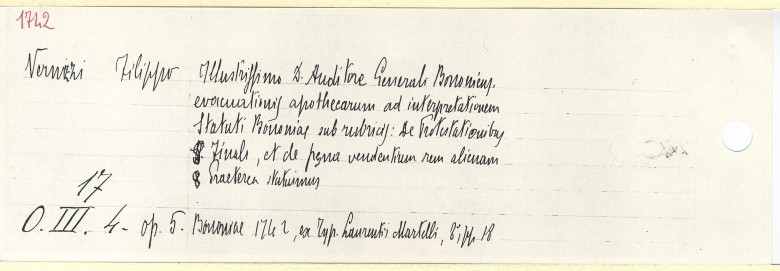 1742
Vernizzi Filippo Illustrissimo D. Auditore Generali Bononien.
evacuationis apothecarum ad interpretationem
Statuti Bononiae sub rubricis: De Protestationibus
§. Finali, et de poena vendentium rem alienam
§ Praeterea statuimus
17
O. III. 4- op. 5. Bononiae 1742, ex Typ. Laurentii Martelli, 8°, pp. 18